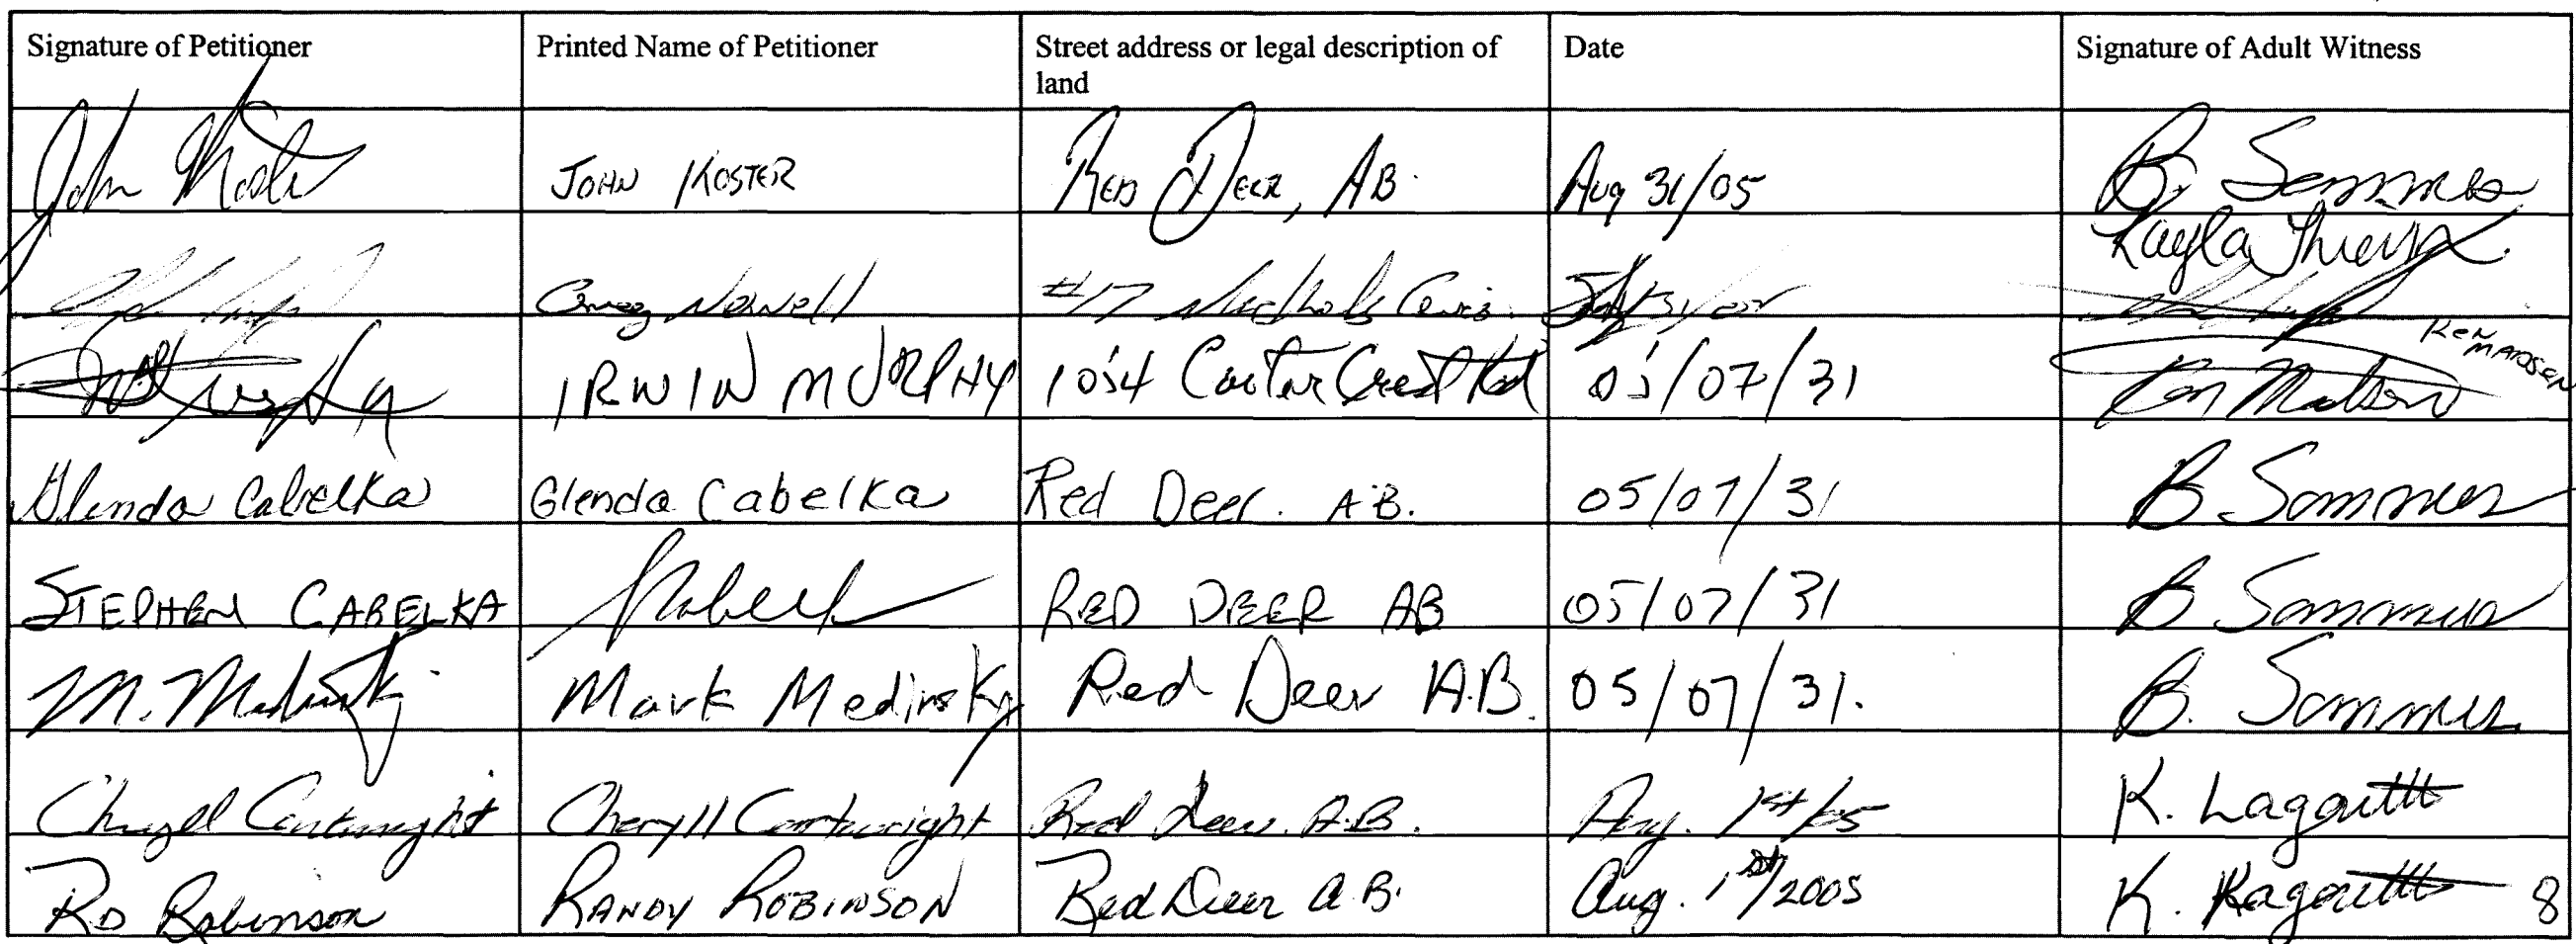 Signature of Petitioner Printed Name of Petitioner Street address or legal description of land Date Signature of Adult Witness
John Koster JOHN KOSTER RED DEER, AB. Aug 31/05 B. Sommers
Kayla
Nowell #17
IRWIN MURPHY 1054 Carter Crest Rd 05/07/31 Ken Madsen KEN MADSEN
Glenda Cabelka Glenda Cabelka Red Deer. AB. 05/07/31 B Sommers
STEPHEN CABELKA RED DEER AB 05/07/31 B Sommers
M. Medinsky Mark Medinsky Red Deer A.B. 05/07/31. B. Sommers
Cheryll Cartwright Cheryll Cartwright Red Deer. A.B. Aug. 1st/05 K.
RD Robinson RANDY ROBINSON Red Deer A.B. Aug. 1st/2005 K. 8